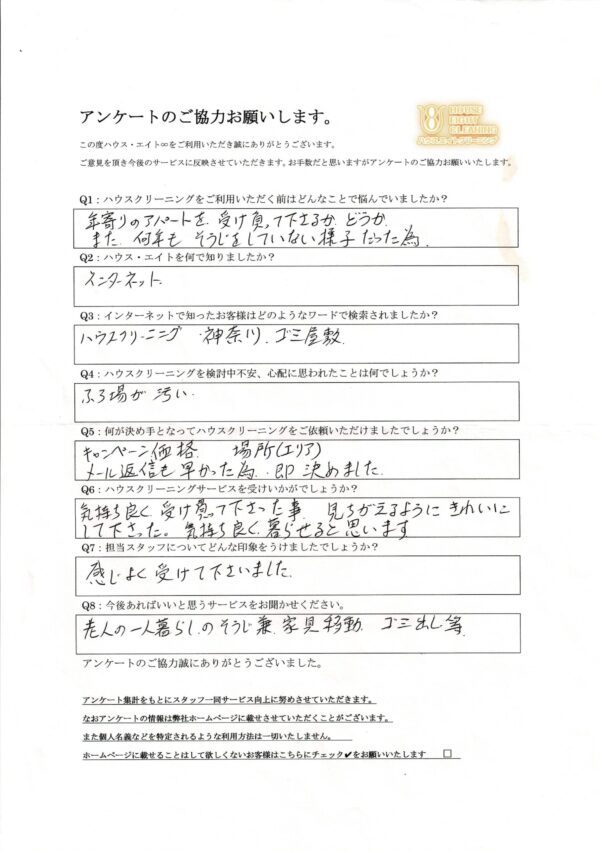 アンケートのご協力お願いします。
HOUSE
EIGHT
CLEANING
ハウスエイトクリーニング
この度ハウス・エイト∞をご利用いただき誠にありがとうございます。
ご意見を頂き今後のサービスに反映させていただきます。お手数だと思いますがアンケートのご協力お願いいたします。
Q1：ハウスクリーニングをご利用いただく前はどんなことで悩んでいましたか？
年寄りのアパートを受け負って下さるか どうか
また 何年も そうじをしていない様子だった為.
Q2：ハウス・エイトを何で知りましたか？
インターネット.
Q3：インターネットで知ったお客様はどのようなワードで検索されましたか？
ハウスクリーニング ・神奈川. ゴミ屋敷.
Q4：ハウスクリーニングを検討中不安、心配に思われたことは何でしょうか？
ふろ場が 汚い.
Q5：何が決め手となってハウスクリーニングをご依頼いただけましたでしょうか？
キャンペーン価格. 場所(エリア)
メール返信も 早かった為. 即 決めました.
Q6：ハウスクリーニングサービスを受けいかがでしょうか？
気持ち良く 受け負って下さった事. 見ちがえるように きれいに
して下さった。 気持ち良く 暮らせると思います
Q7：担当スタッフについてどんな印象をうけましたでしょうか？
感じよく 受けて下さいました.
Q8：今後あればいいと思うサービスをお聞かせください。
老人の一人暮らしのそうじ兼. 家具移動. ゴミ出し等.
アンケートのご協力誠にありがとうございました。
アンケート集計をもとにスタッフ一同サービス向上に努めさせていただきます。
なおアンケートの情報は弊社ホームページに載せさせていただくことがございます。
また個人名義などを特定されるような利用方法は一切いたしません。
ホームページに載せることはして欲しくないお客様はこちらにチェック✔をお願いいたします □